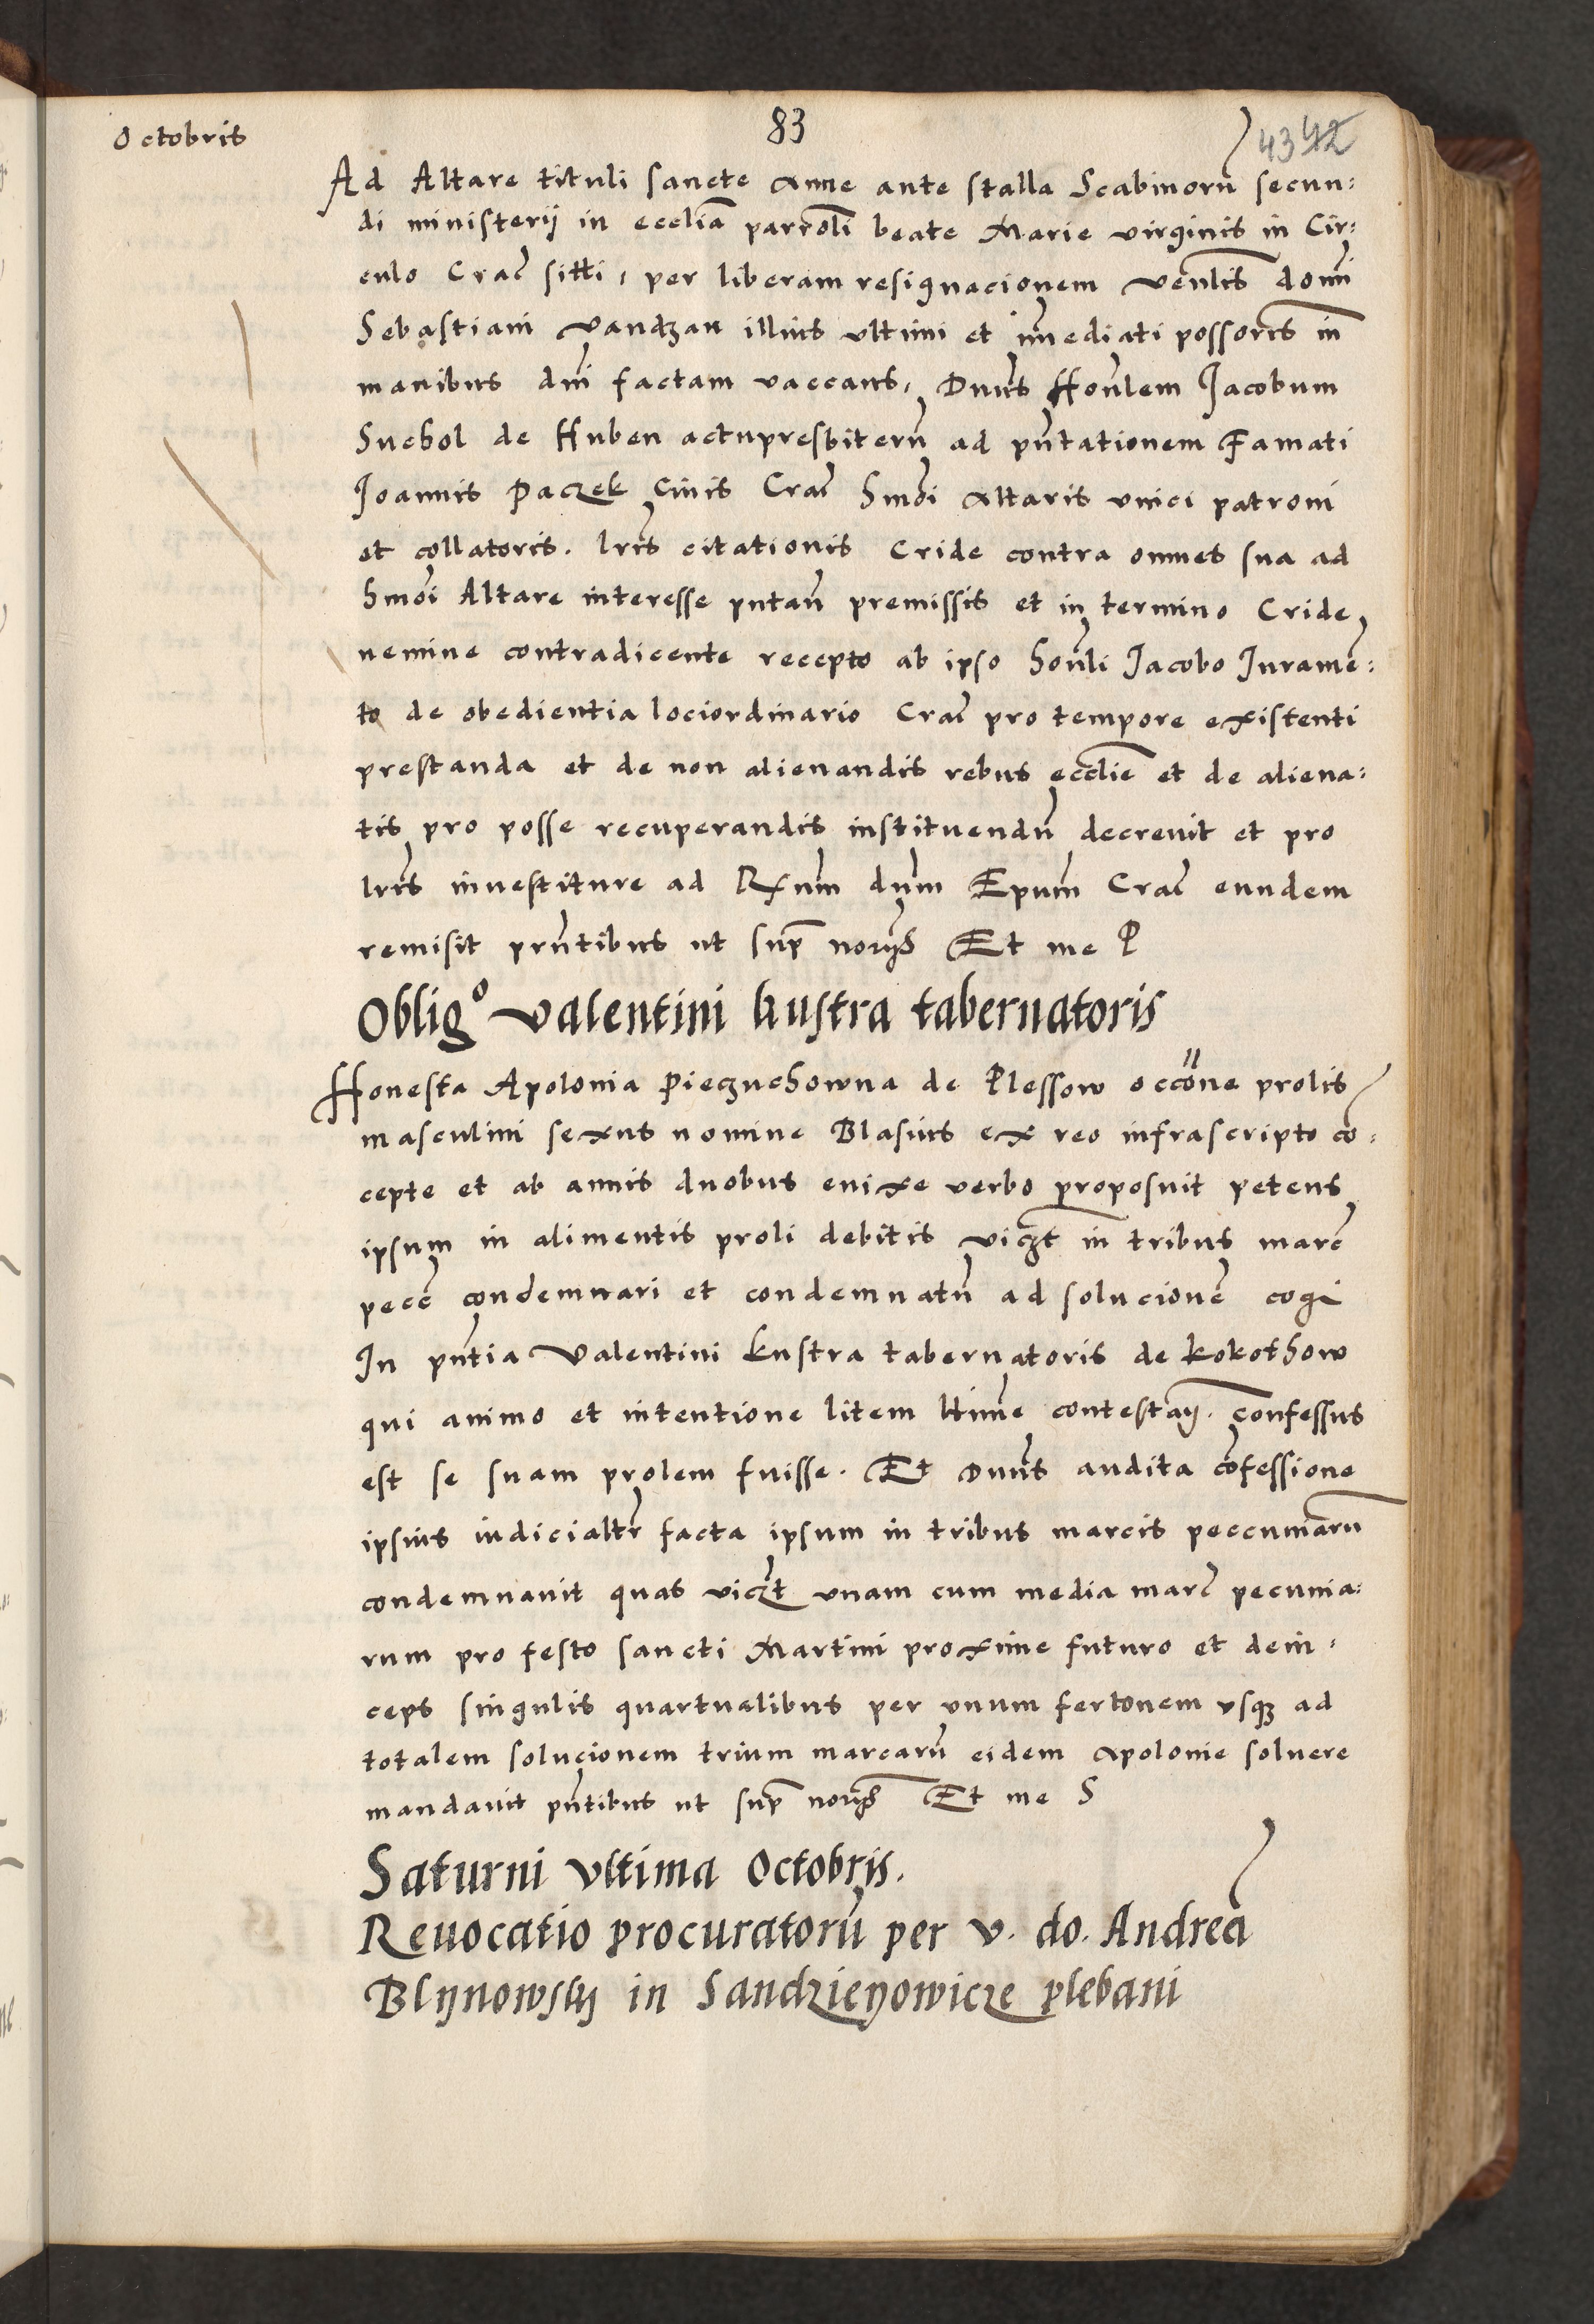 Octobris
83
43 42
Ad Altare tituli sancte Anne ante stalla Scabinorū secun:
di ministerij in eccliā parrolī beate Marie virginis in Cir:
culo Crac̄ sitti, per liberam resignacionem venlis domī
Sebastiani vandzan illius ultimi et īmediati possoris in
manibus dnī factam vaccans, Dnus Honlem Jacobum
Suchol de Huben actupresbiterū ad pn̄tationem Famati
Joannis Paczek Civis Crac̄ Hmōi Altaris vnici patroni
et collatoris. lrīs citationis Cride contra omnes sua ad
hmōi Altare interesse putan̄ premissis et in termino Cride
nemine contradicente recepto ab ipso honli Jacobo Juramē:
to de obedientia lociordinario Crac̄ pro tempore existenti
prestanda et de non alienandis rebus ecclīe et de aliena:
tis pro posse recuperandis instituendū decrevit et pro
lrīs investiture ad Rxm̄ dnm̄ Epum̄ Crac̄ eundem
remisit prn̄tibus ut sup̄ norijs Et me P
Oblig° valentini kustra tabernatoris
Honesta Apolonia Pieczuchowna de Plessow occōne prolis
masculini sexus nomine Blasius ex reo infrascripto cō:
cepte et ab annis duobus enixe verbo proposuit petens
ipsum in alimentis proli debitis viczt in tribus marc̄
pecc̄ condemnari et condemnatū ad solucionē cogi
In pn̄tia Valentini kustra tabernatoris de kokothow
qui animo et intentione litem ltime contestan̄. confessus
est se suam prolem fuisse. Et Dnus audita cōfessione
ipsius iudicialtr̄ facta ipsum in tribus marcis peccuniarū
condemnauit quas viczt unam cum media marc̄ pecunia:
rum pro festo sancti Martini proxime futuro et dein:
ceps singulis quartualibus per vnum fertonem vsq3 ad
totalem solucionem trium marcarū eidem Apolonie soluere
mandauit pn̄tibus ut sup̄ norijs Et me S
Saturni vltima Octobris.
Reuocatio procuratorū per v. do. Andreā
Blynowsky in Sandzieyowicze plebani